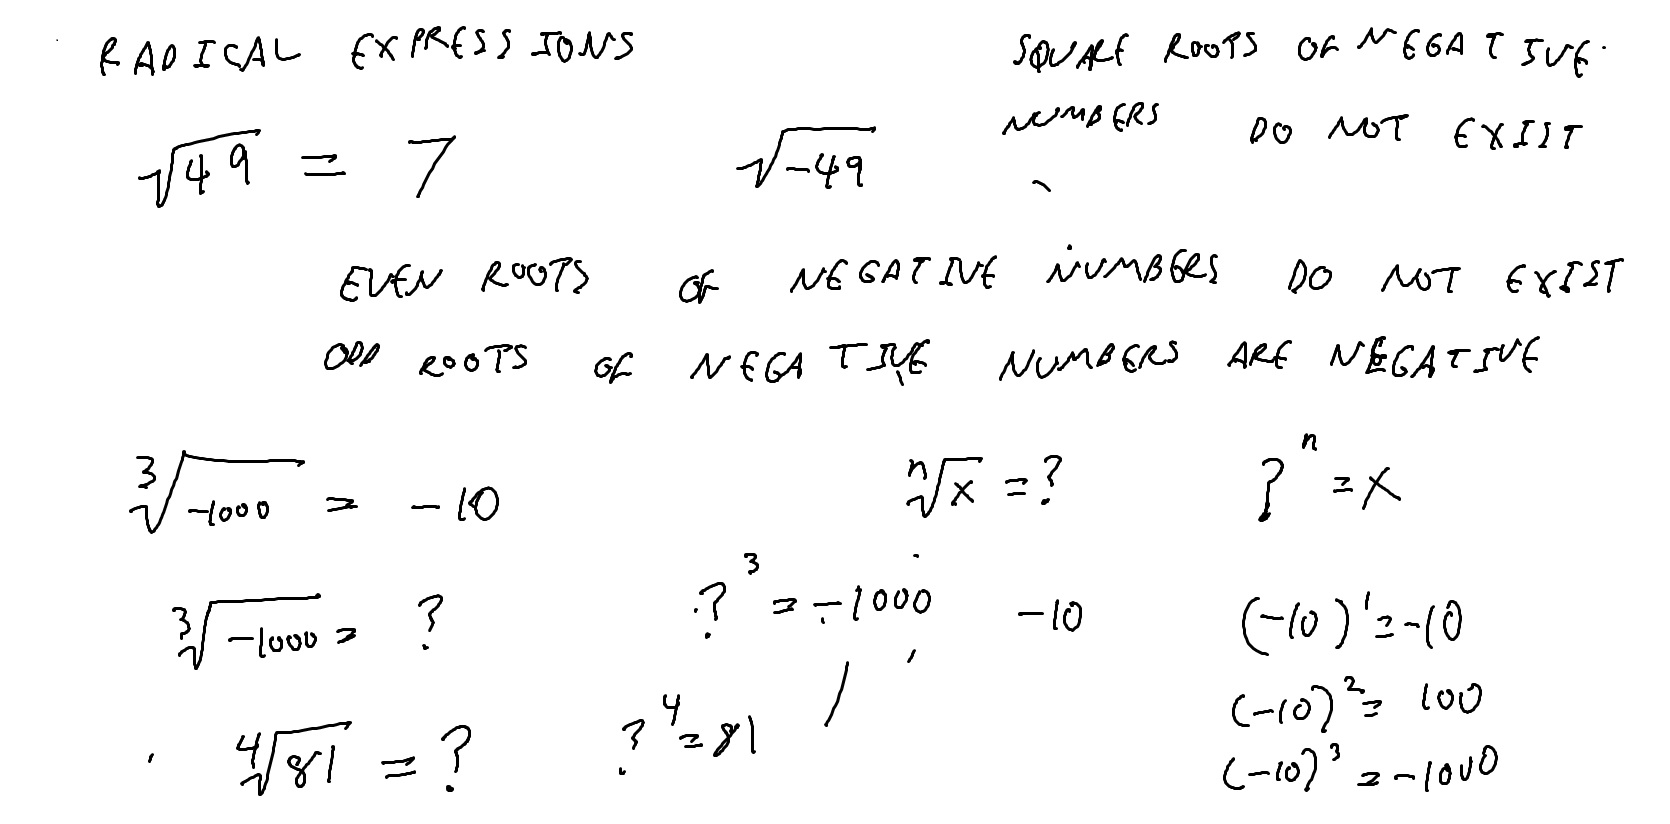 RADICAL EXPRESSIONS
SQUARE ROOTS OF NEGATIVE
NUMBERS DO NOT EXIST
√49 = 7
√-49
EVEN ROOTS OF NEGATIVE NUMBERS DO NOT EXIST
ODD ROOTS OF NEGATIVE NUMBERS ARE NEGATIVE
∛-1000 = -10
ⁿ√x = ?
?ⁿ = x
∛-1000 = ?
?³ = -1000
-10
(-10)¹ = -10
(-10)² = 100
(-10)³ = -1000
∜81 = ?
?⁴ = 81